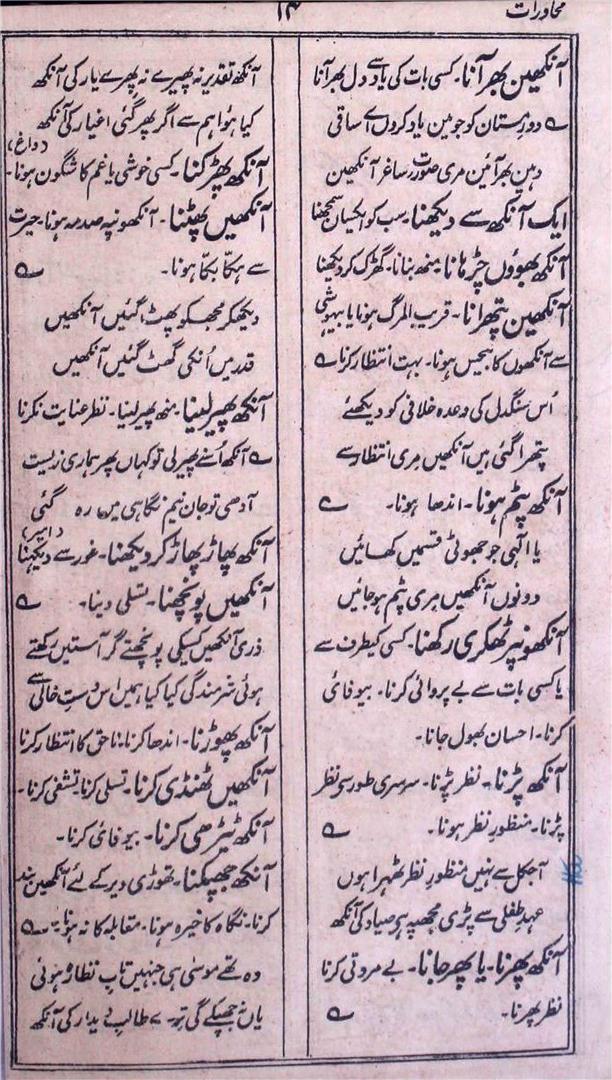 محاورات
۱۴
آنکھین بھر آنا۔ کسی بات کی یاد سے دل بھر آنا
دورِ مستان کو جو مین یاد کروں اے ساقی
وہین بھر آئین مری صورتِ ساغر آنکھین
ایک آنکھ سے دیکھنا۔ سب کو یکسان سمجھنا
آنکھ بھووں چڑھانا۔ منھ بنانا۔ گھڑک کر دیکھنا
آنکھین پتھرانا۔ قریب المرگ ہونا یا بیہوشی
سے آنکھوں کا بیحس ہونا۔ بہت انتظار کرنا
اُس سنگدل کی وعدہ خلافی کو دیکھئے
پتھرا گئی ہیں آنکھیں مری انتظار سے
آنکھ پٹم ہونا۔ اندھا ہونا۔
یا الٰہی جو جھوٹی قسمیں کھائیں
دونوں آنکھیں مری پٹم ہو جائیں
آنکھونپر ٹھکری رکھنا۔ کسی کیطرف سے
یا کسی بات سے بے پروائی کرنا۔ بیوفائی
کرنا۔ احسان بھول جانا۔
آنکھ پڑنا۔ نظر پڑنا۔ سرسری طور سے نظر
پڑنا۔ منظورِ نظر ہونا۔
آجکل سے نہیں منظورِ نظر ٹھہرا ہوں
عہدِ طفلی سے پڑی مجھپہ ہی صیاد کی آنکھ
آنکھ پھرنا۔ یا پھر جانا۔ بے مروتی کرنا
نظر پھرنا۔
آنکھ تقدیر نہ پھیرے نہ پھرے یار کی آنکھ
کیا ہوا ہم سے اگر پھر گئی اغیار کی آنکھ
(داغ)
آنکھ پھڑکنا۔ کسی خوشی یا غم کا شگون ہونا۔
آنکھیں پھٹنا۔ آنکھونپہ صدمہ ہونا۔ حیرت
سے ہکّا بکّا ہونا۔
دیکھکر مجھکو پھٹ گئیں آنکھیں
قدر میں اُنکی گھٹ گئیں آنکھیں
آنکھ پھیر لینا۔ منھ پھیر لینا۔ نظر عنایت نکرنا
آنکھ اُسنے پھیر لی تو کہاں پھر ہماری زیست
آدھی تو جان نیم نگاہی میں رہ گئی
(اسیر)
آنکھ پھاڑ پھاڑ کر دیکھنا۔ غور سے دیکھنا
آنکھیں پونچھنا۔ تسلی دینا۔
ذری آنکھیں کسیکی پونچھتے گر آستیں رکھتے
ہوئی شرمندگی کیا کیا ہمیں اس دستِ خالی سے
آنکھ پھوڑنا۔ اندھا کرنا۔ ناحق کا انتظار کرنا
آنکھیں ٹھنڈی کرنا۔ تسلی کرنا۔ تشفی کرنا۔
آنکھ ٹیڑھی کرنا۔ بیوفائی کرنا۔
آنکھ جھپکنا۔ تھوڑی دیر کے لئے آنکھین بند
کرنا۔ نگاہ کا خیرہ ہونا۔ مقابلہ کا نہ ہونا۔
وہ تھے موسیٰ ہی جنہیں تابِ نظارہ نہوئی
یاں نہ جھپکے گی ترے طالبِ دیدار کی آنکھ